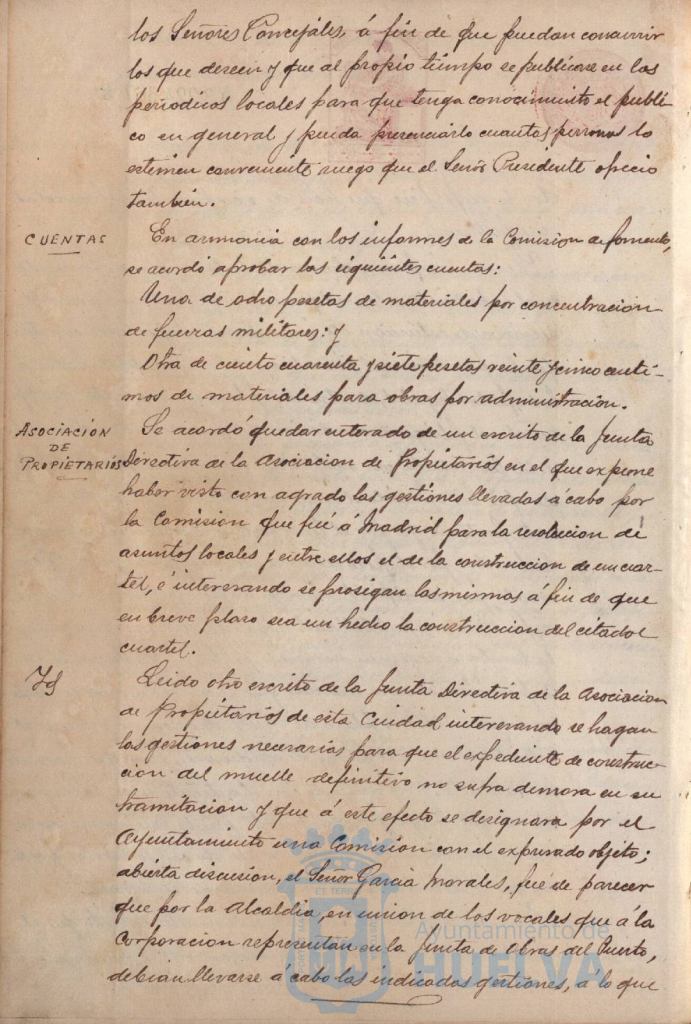 los Señores Concejales, á fin de que puedan concurrir
los que deseen y que al propio tiempo se publicase en los
periodicos locales para que tenga conocimiento el públi-
co en general y pueda presenciarlo cuantas personas lo
estimen conveniente ruego que el Señor Presidente ofreció
también.
CUENTAS
En armonia con los informes de la Comision de fomento,
se acordó aprobar las siguientes cuentas:
Una de ocho pesetas de materiales por concentracion
de fuerzas militares: y
Otra de ciento cuarenta y siete pesetas veinte y cinco centi-
mos de materiales para obras por administración.
ASOCIACIÓN
DE
PROPIETARIOS
Se acordó quedar enterado de un escrito de la Junta
Directiva de la Asociacion de Propietarios en el que expone
haber visto con agrado las gestiones llevadas á cabo por
la Comision que fué á Madrid para la resolucion de
asuntos locales y entre ellos el de la construccion de un cuar-
tel, é interesando se prosigan las mismas á fin de que
en breve plazo sea un hecho la construccion del citado
cuartel.
Id
Leido otro escrito de la Junta Directiva de la Asociacion
de Propietarios de esta Ciudad interesando se hagan
las gestiones necesarias para que el expediente de construc-
cion del muelle definitivo no sufra demora en su
tramitacion y que á este efecto se designara por el
Ayuntamiento una Comision con el expresado objeto;
abierta discusion, el Señor Garcia Morales, fué de parecer
que por la Alcaldia, en union de los vocales que á la
Corporacion representan en la Junta de Obras del Puerto,
debian llevarse á cabo las indicadas gestiones, á lo que
Ayuntamiento de
HUELVA